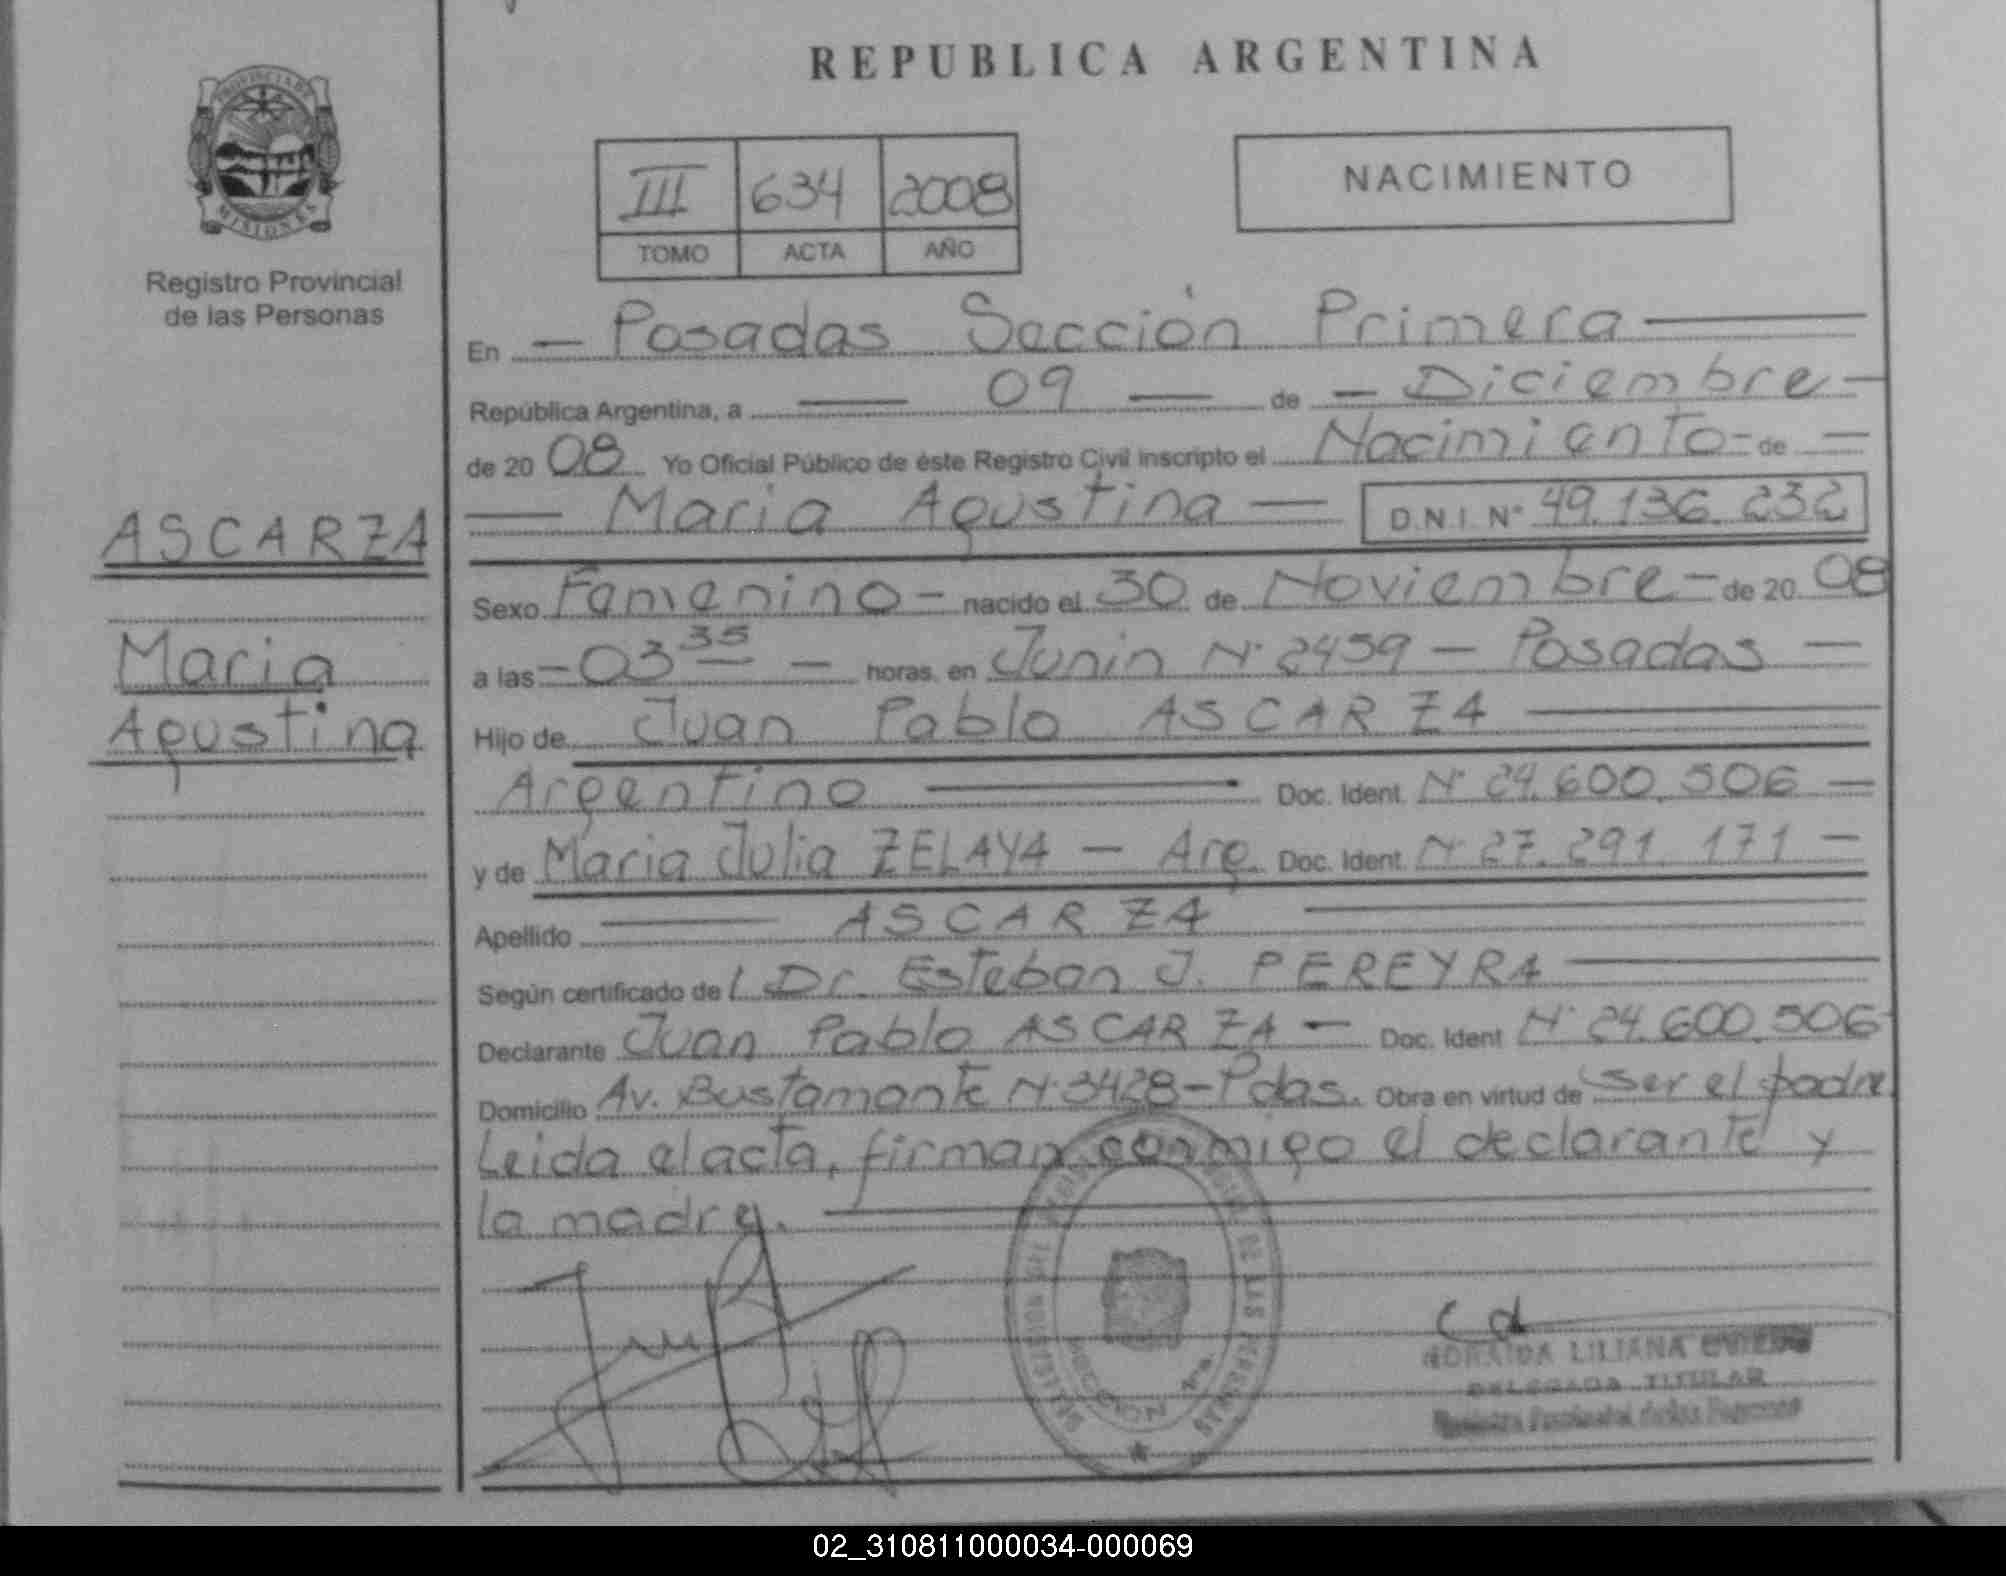 REPUBLICA ARGENTINA
PROVINCIA DE
MISIONES
Registro Provincial
de las Personas
III 634 2008
TOMO ACTA AÑO
NACIMIENTO
En — Posadas Sección Primera —
República Argentina, a — 09 — de — Diciembre —
de 20 08 Yo Oficial Público de éste Registro Civil inscripto el Nacimiento - de —
— Maria Agustina — D.N.I. Nº 49.136.232
ASCARZA
Maria
Agustina
Sexo Femenino - nacido el 30 de Noviembre - de 20 08
a las - 03 35 — horas, en Junin Nº 2459 - Posadas —
Hijo de Juan Pablo ASCARZA —
Argentino — Doc. Ident. Nº 24.600.506 —
y de Maria Julia ZELAYA - Arg. Doc. Ident. Nº 27.291.171 —
Apellido — ASCARZA —
Según certificado de / Dr. Esteban J. PEREYRA —
Declarante Juan Pablo ASCARZA - Doc. Ident Nº 24.600.506
Domicilio Av. Bustamante Nº 3428 - Pdas. Obra en virtud de ser el padre
Leida el acta, firman conmigo el declarante y
la madre. —
DE LAS PERSONAS
SECCION 1ra.
LILIANA
DELEGADA TITULAR
02_310811000034-000069